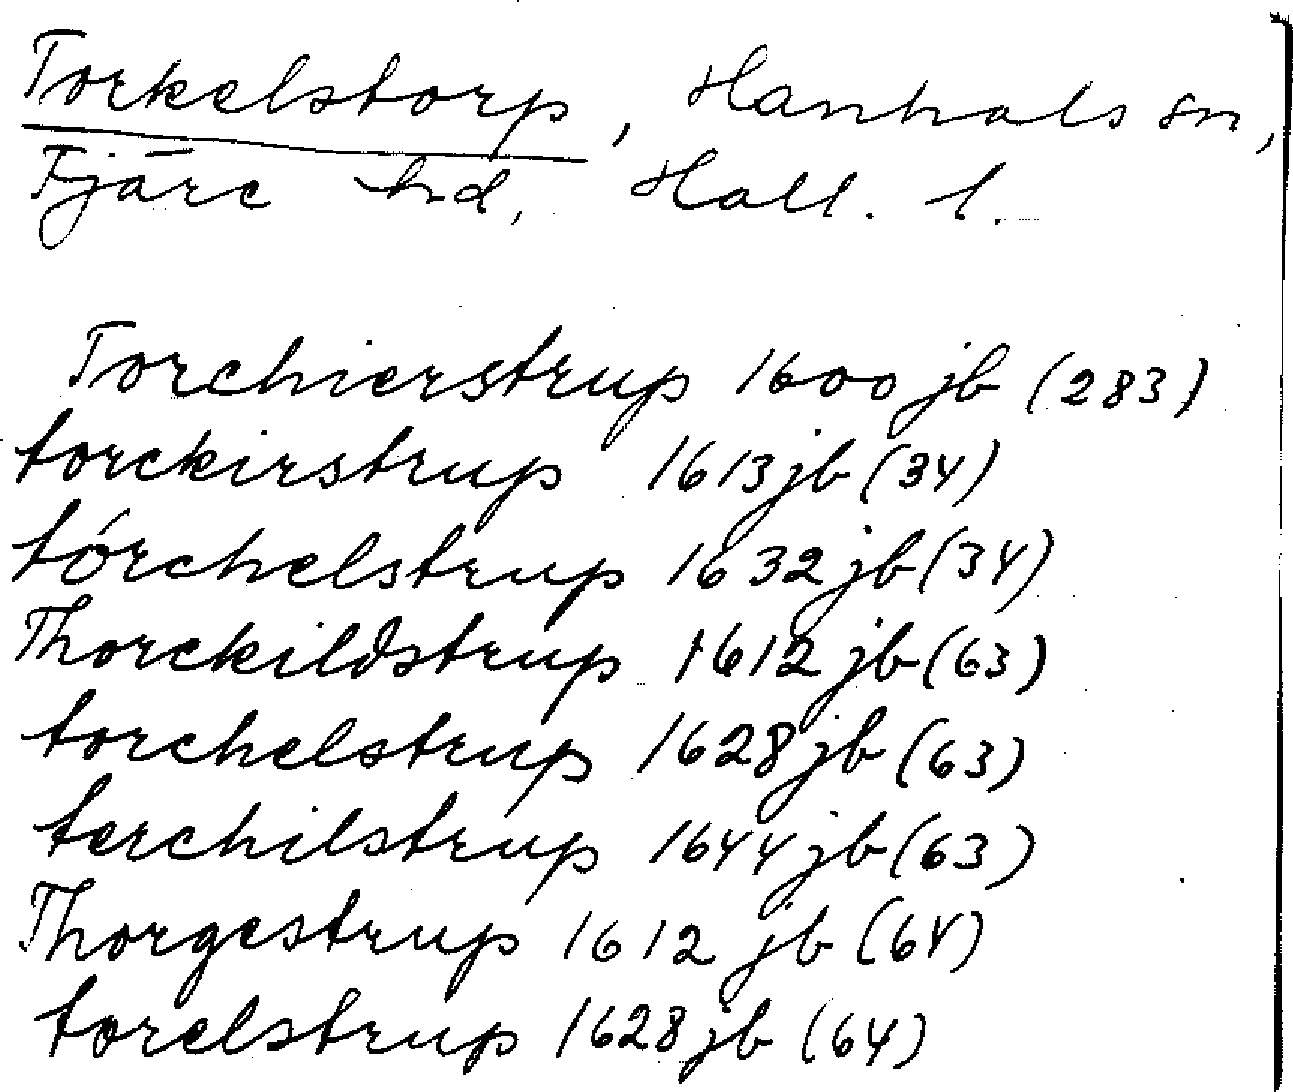 Torkelstorp, Hanhals sn,
Fjäre hd, Hall. l.
Torchierstrup 1600 jb (283)
torckirstrup 1613 jb (34)
tórchelstrup 1632 jb (34)
Thorckildstrup 1612 jb (63)
torchelstrup 1628 jb (63)
terchilstrup 1644 jb (63)
Thorgestrup 1612 jb (64)
torelstrup 1628 jb (64)